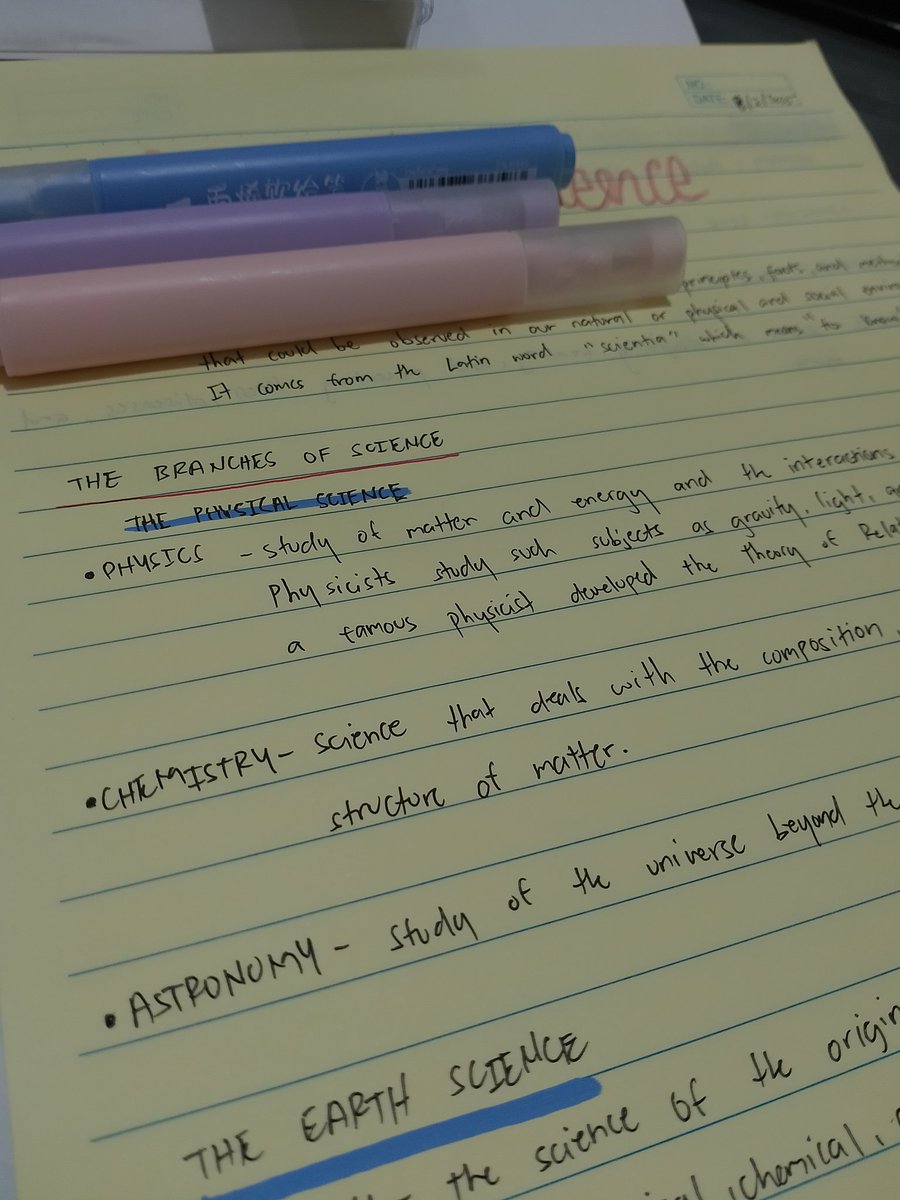 NO.
DATE
ence
principles, facts, and
that could be observed in our natural or physical and social
It comes from th Latin word "scientia" which means "to
THE BRANCHES OF SCIENCE
THE PHYSICAL SCIENCE
• PHYSICS - study of matter and energy and th interactions
Physicists study such subjects as gravity, light,
a famous physicist developed the theory of
• CHEMISTRY - science that deals with the composition
structure of matter.
• ASTRONOMY - study of the universe beyond the
THE EARTH SCIENCE
the science of the origin
chemical,